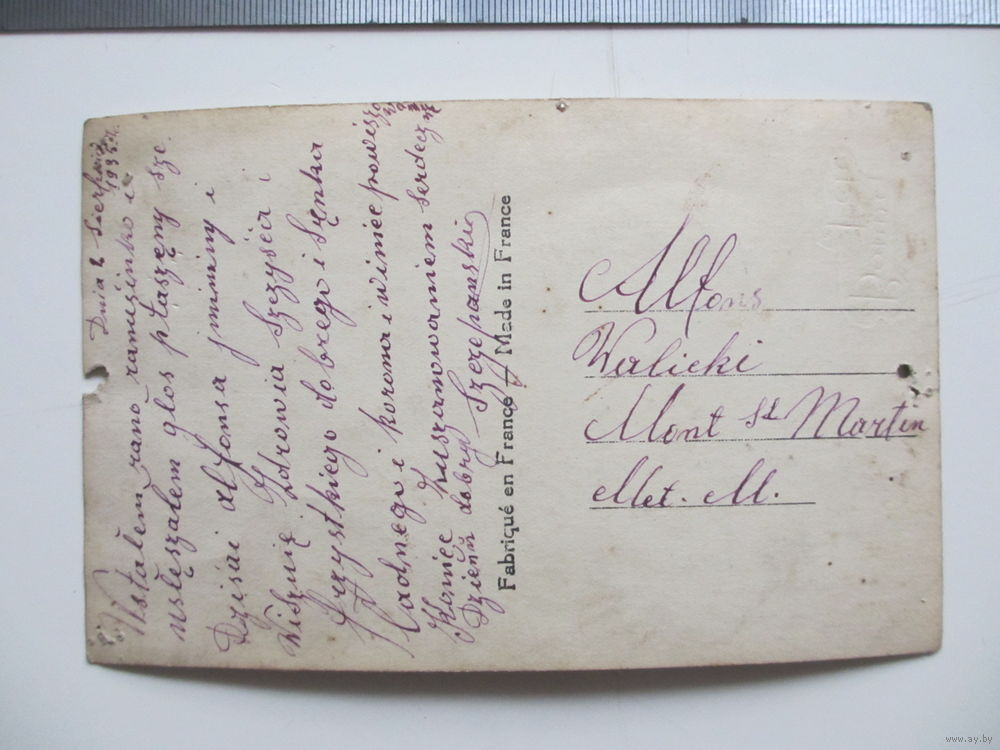 Dnia 2 Sierpnia
1935 r.
Wstałem rano raniusinko i
usłęszałem głos ptaszęny sze
Dzisiai Alfonsa jmininy i
Wisznię Zdrowia Szczyścia i
Wszystkiego dobrego i Sęnka
ładnego i korona i winiec powisz
Koniec z uszanowaniem serdeczn
Dzień dobry Szczepanski
Fabriqué en France — Made in France
Alfons
Walicki
Mont St Martin
Met. M.
www.ay.by